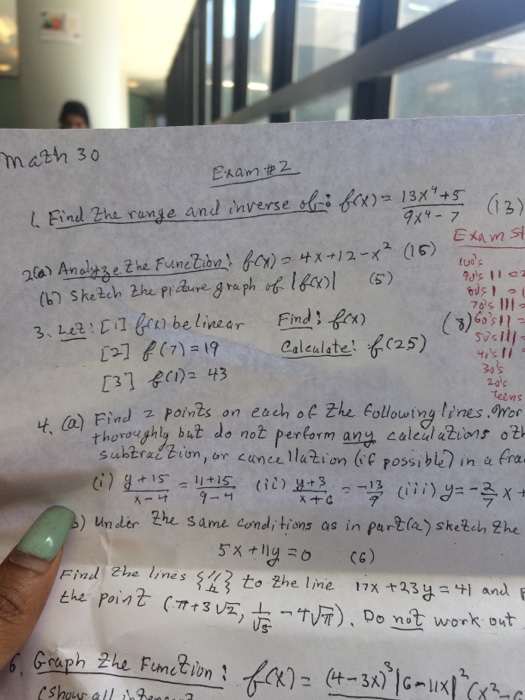 Math 30
Exam #2
1. Find the range and inverse of: f(x) = (13x⁴+5)/(9x⁴-7) (13)
2.(a) Analyze the Function: f(x) = 4x+12-x² (15)
(b) Sketch the picture graph of |f(x)| (5)
Exam St
100's
90's ||
80's |
70's |||
60's ||
50's |||
40's ||
30's
20's
Teens
3. Let: [1] f(x) be linear Find: f(x) (8)
[2] f(7) = 19 Calculate: f(25)
[3] f(1) = 43
4. (a) Find 2 points on each of the following lines. Wor
thoroughly but do not perform any calculations oth
subtraction, or cancellation (if possible) in a fra
(i) (y+15)/(x-4) = (11+15)/(9-4) (ii) (y+3)/(x+6) = -13/9 (iii) y = -2/7 x +
b) Under the same conditions as in part (a) sketch the
5x + 11y = 0 (6)
Find the lines to the line 17x + 23y = 41 and
the point (π+3√2, 1/√5 - 4√π). Do not work out
6. Graph the Function: f(x) = (4-3x)³|6-11x|²(x²-
(show all